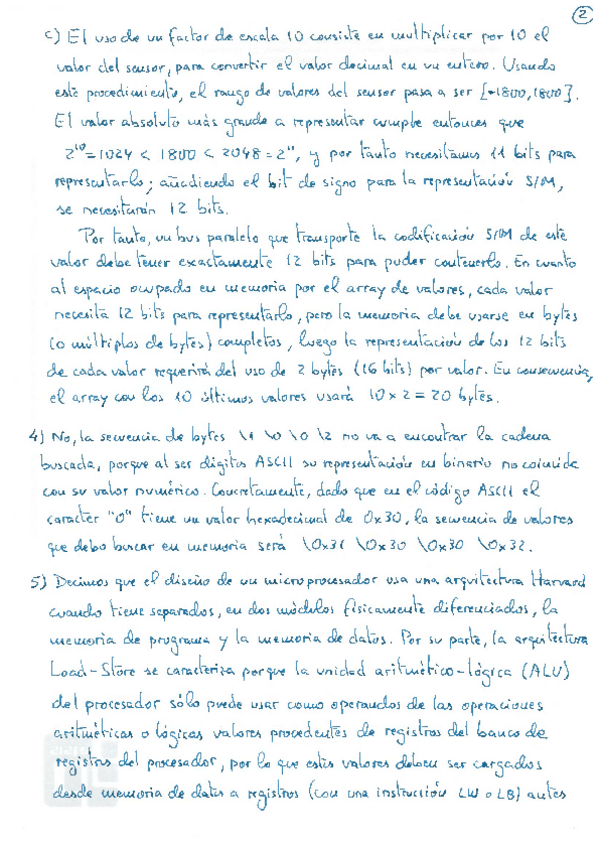 2
c) El uso de un factor de escala 10 consiste en multiplicar por 10 el
valor del sensor, para convertir el valor decimal en un entero. Usando
este procedimiento, el rango de valores del sensor pasa a ser [-1800,1800].
El valor absoluto más grande a representar cumple entonces que
2¹⁰=1024 < 1800 < 2048=2¹¹, y por tanto necesitamos 11 bits para
representarlo; añadiendo el bit de signo para la representación S/M,
se necesitarán 12 bits.
Por tanto, un bus paralelo que transporte la codificación S/M de este
valor debe tener exactamente 12 bits para poder contenerlo. En cuanto
al espacio ocupado en memoria por el array de valores, cada valor
necesita 12 bits para representarlo, pero la memoria debe usarse en bytes
(o múltiplos de bytes) completos, luego la representación de los 12 bits
de cada valor requerirá del uso de 2 bytes (16 bits) por valor. En consecuencia,
el array con los 10 últimos valores usará 10 x 2 = 20 bytes.
4) No, la secuencia de bytes \1 \0 \0 \2 no va a encontrar la cadena
buscada, porque al ser dígitos ASCII su representación en binario no coincide
con su valor numérico. Concretamente, dado que en el código ASCII el
caracter "0" tiene un valor hexadecimal de 0x30, la secuencia de valores
que debo buscar en memoria será \0x31 \0x30 \0x30 \0x32.
5) Decimos que el diseño de un microprocesador usa una arquitectura Harvard
cuando tiene separados, en dos módulos físicamente diferenciados, la
memoria de programa y la memoria de datos. Por su parte, la arquitectura
Load-Store se caracteriza porque la unidad aritmético-lógica (ALU)
del procesador sólo puede usar como operandos de las operaciones
aritméticas o lógicas valores procedentes de registros del banco de
registros del procesador, por lo que estos valores deben ser cargados
desde memoria de datos a registros (con una instrucción LW o LB) antes